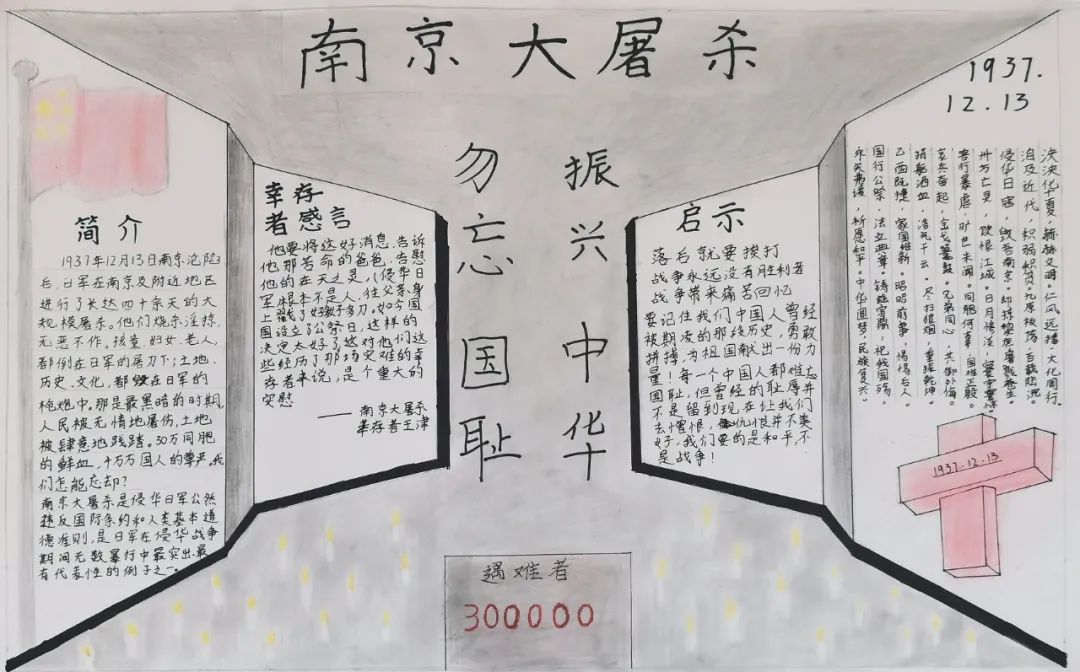 南京大屠杀
1937.
12.13
勿忘国耻
振兴中华
简介
1937年12月13日南京沦陷
后，日军在南京及附近地区
进行了长达四十余天的大
规模屠杀。他们烧杀淫掠，
无恶不作。孩童、妇女、老人，
都倒在日军的屠刀下；土地、
历史、文化，都毁在日军的
枪炮中。那是最黑暗的时期，
人民被无情地屠伤，土地
被肆意地践踏。30万同胞
的鲜血，千万万国人的尊严。我
们怎能忘却？
南京大屠杀是侵华日军公然
违反国际条约和人类基本道
德准则，是日军在侵华战争
期间无数暴行中最突出、最
有代表性的例子之一。
幸存
者感言
他要将这好消息，告诉
他那苦命的爸爸，告慰
他的在天之灵八侵华日
军根本不是人，往父亲身
上戳了好几刀。如今国
国设立了公祭日，这样的
决定太好了，这对他们这
些经历了那场灾难的幸
存者来说，是个重大的
安慰
—— 南京大屠杀
幸存者王津
启示
落后就要挨打
战争永远没有胜利者
战争带来痛苦回忆
要记住我们中国人曾经
被欺凌的那段历史，勇敢
拼搏，为祖国献出一份力
量！每一个中国人都难忘
国耻，但曾经的耻辱并
不是留到现在让我们
去懂恨，仇恨并不美
好，我们要的是和平，不
是战争！
泱泱华夏，赫赫文明。仁风远播，大化周行。
洎及近代，积弱积贫。九原板荡，百载陆沉。
侵华日寇，毁吾南京。劫掠黎庶，屠戮苍生。
卅万亡灵，饮恨江城。日月惨淡，寰宇震惊。
兽行暴虐，旷世未闻。同胞何辜，国难正殷。
哀兵奋起，金戈鼍鼓。兄弟同心，共御外侮。
捐躯洒血，浩气干云。尽扫狼烟，重振乾坤。
乙酉既捷，家国维新。昭昭前事，惕惕后人。
国行公祭，法立典章。铸兹宝鼎，祀我国殇。
永矢弗谖，祈愿和平。中华圆梦，民族复兴。
1937.12.13
遇难者
300000